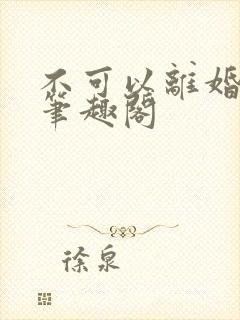 不可以離婚
筆趣閣
徐泉